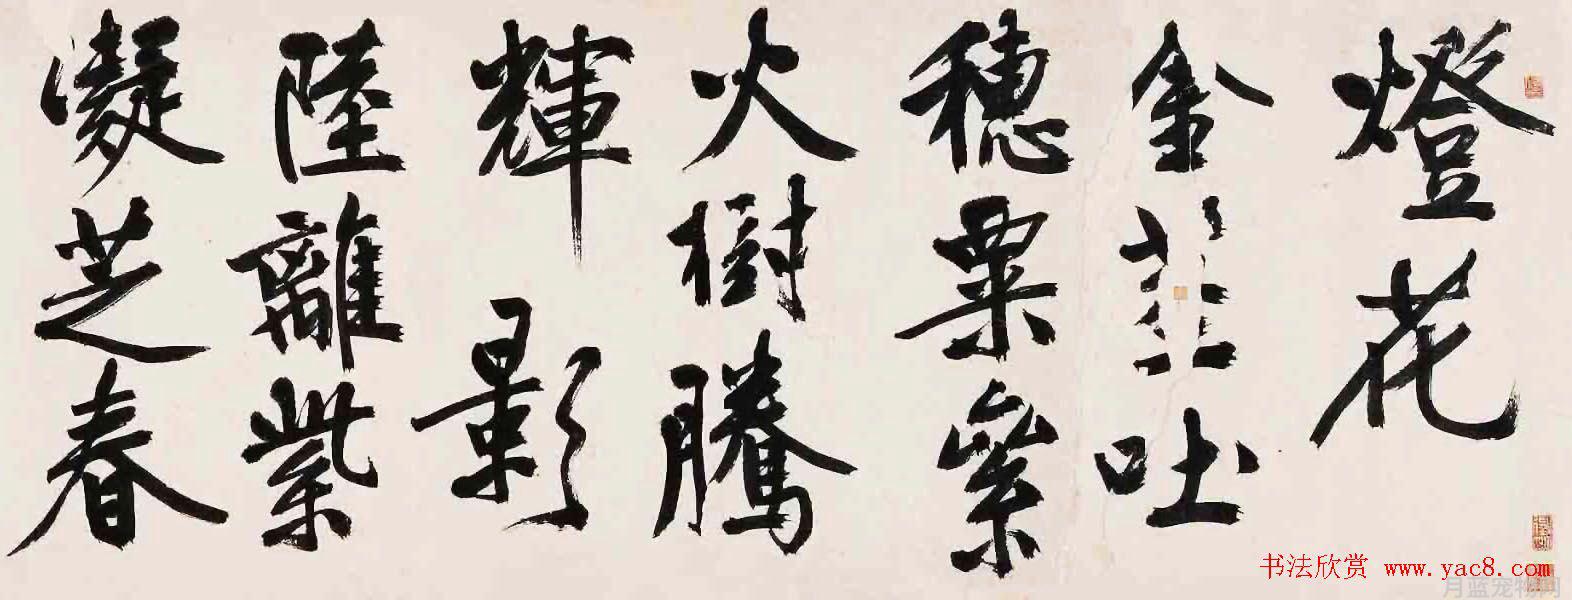 燈花
金吐
穗粟絫
火樹騰
輝影
陸離紫
凝芝春
书法欣赏 www.yac8.com
月蓝宠物网